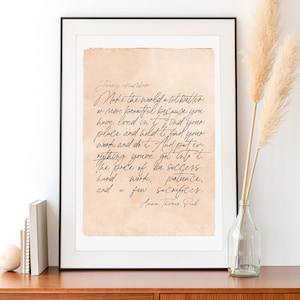 Make the world a bit better
or more beautiful because you
have lived in it. Find your
place and hold it find your
work and do it. And put
everything you've got into it.
the price of success
hard work, patience,
and a few sacrifices.